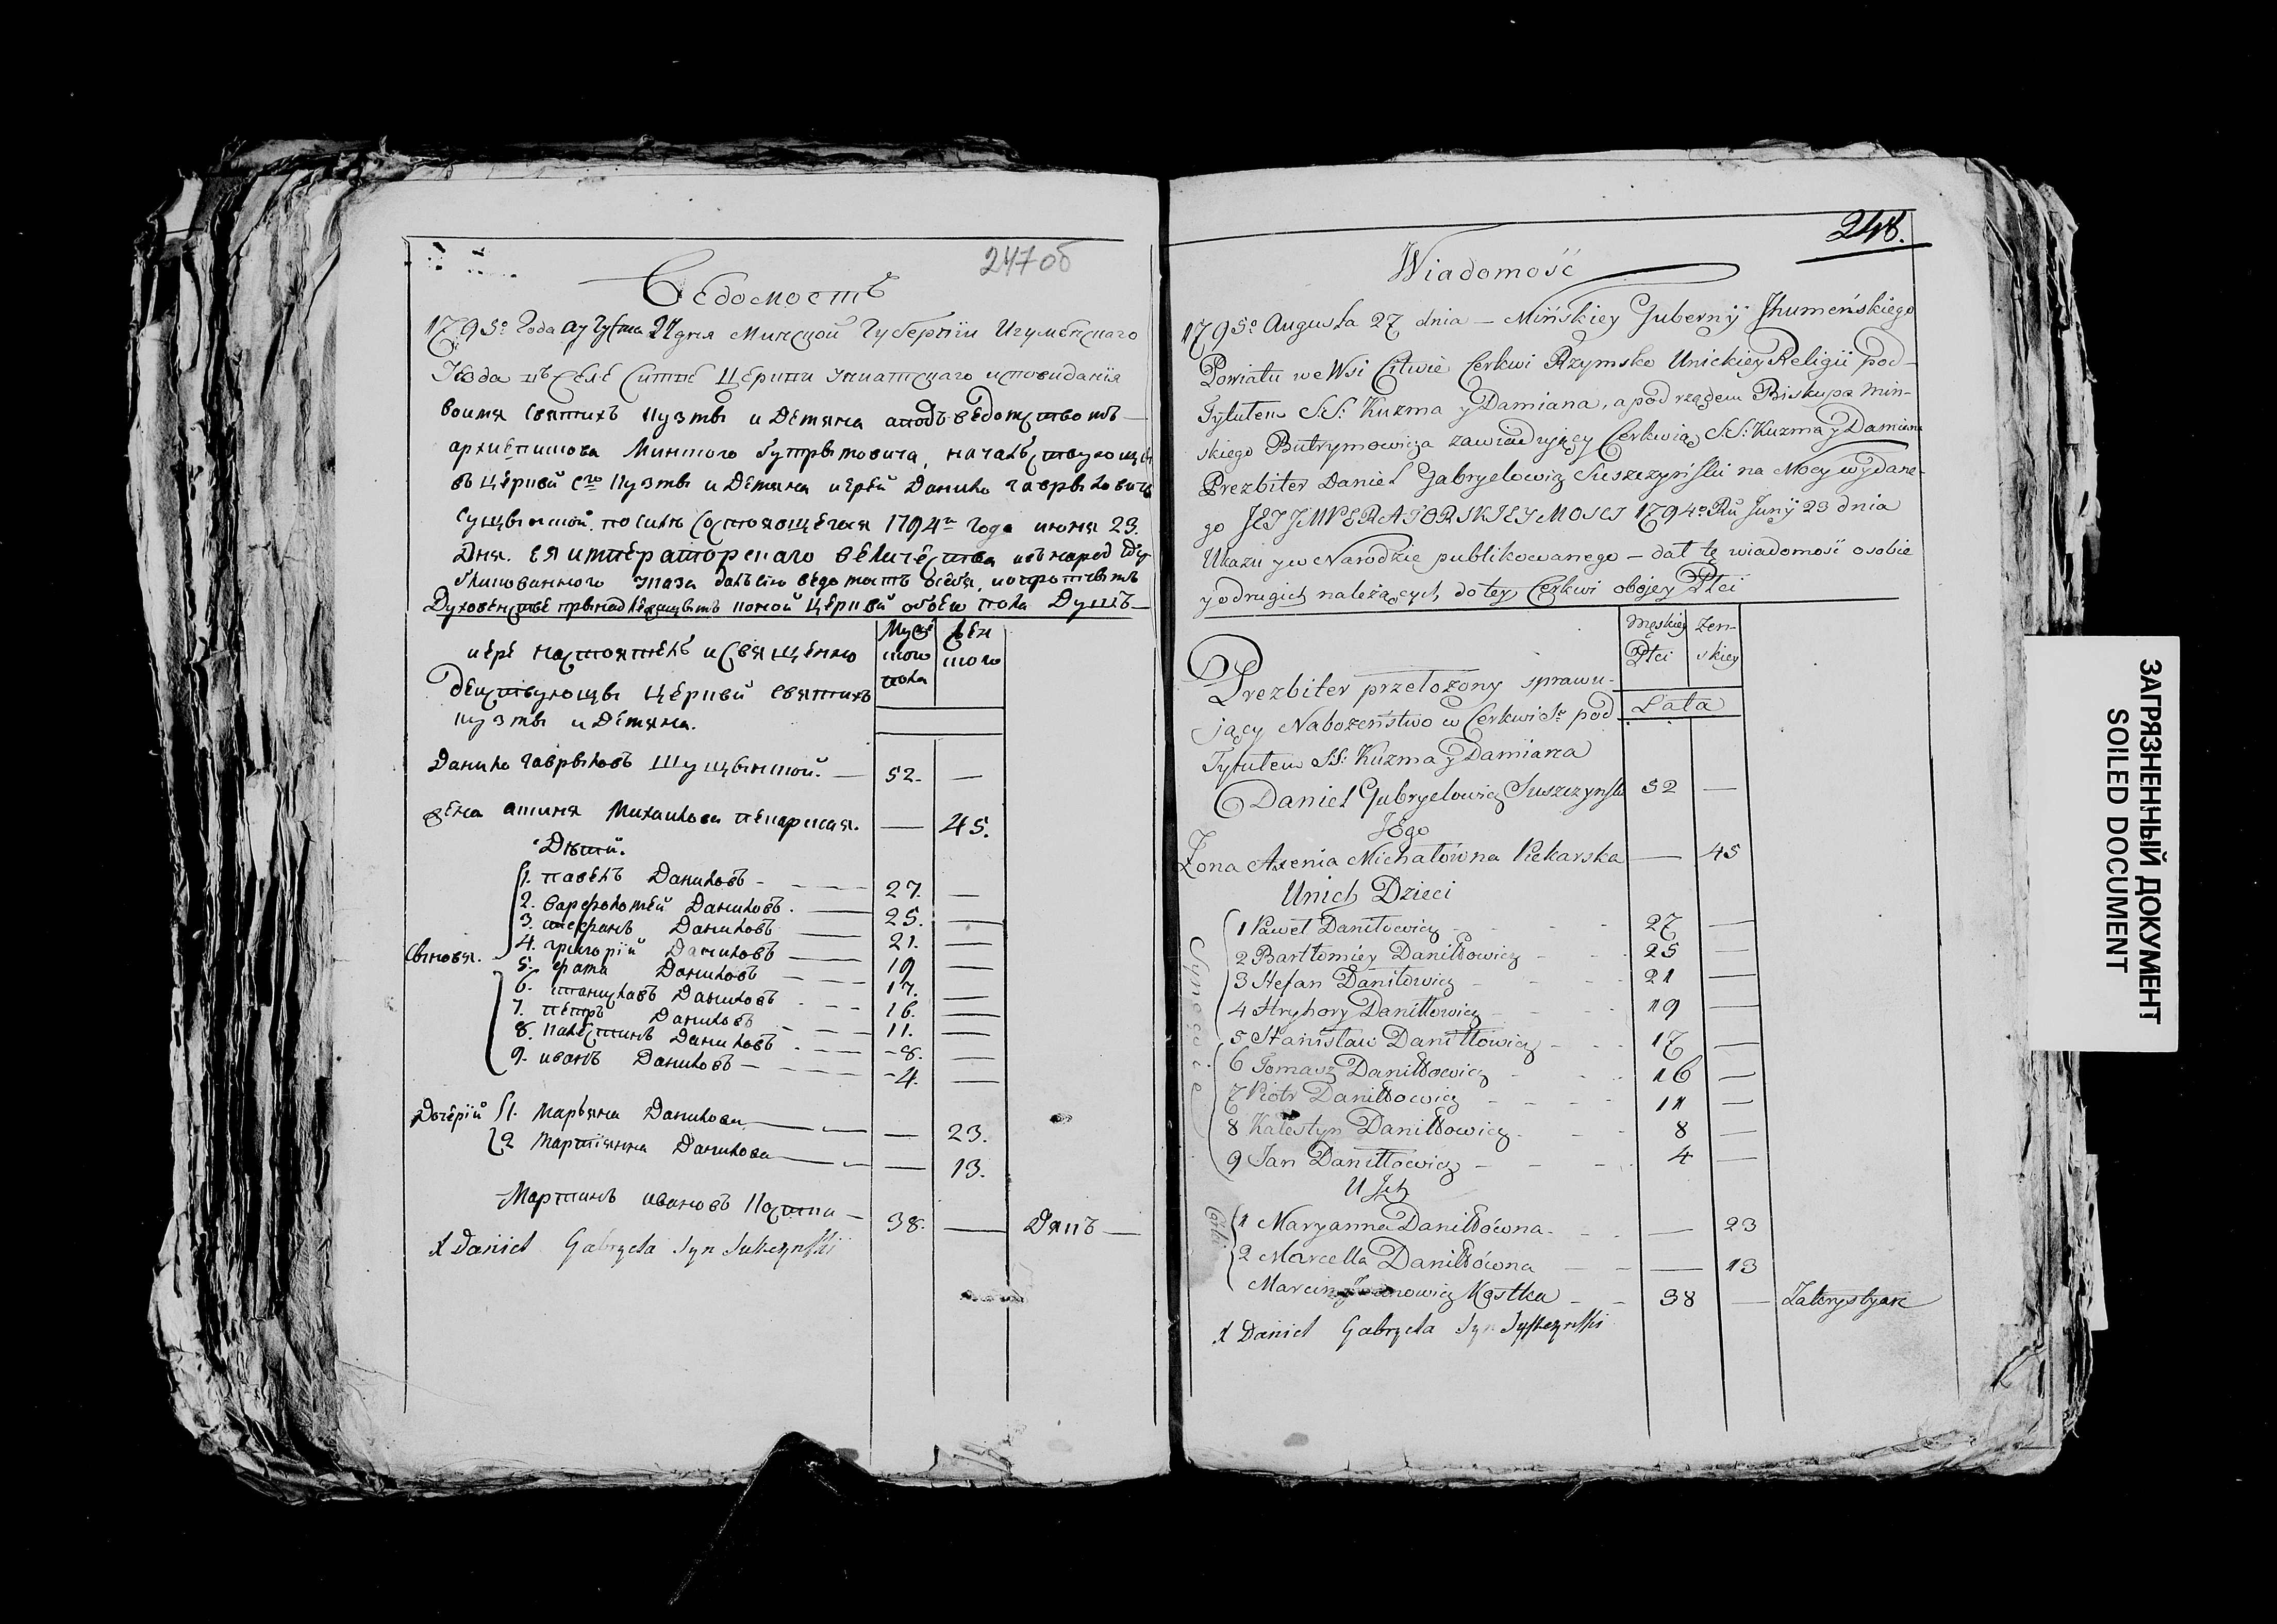 247об
Ведомость
1795го Года Августа 27 дня Минской Губернии Игуменскаго
въ селе Ситце Церкви униатскаго исповидания
воимя Святихъ Кузмы и Демяна аподъ ведомствомъ
архиепископа Минского Бутрымовича, началствующы
въ церкви сго Кузмы и Демяна иерей Данило Гаврылович
по силе состоящегося 1794го Года июня 23
Дня. Ея императорскаго величества
указа ведомость
Духовенстве обоего пола Душъ
Муже
ского
пола
жен
ского
иере настоятель и священно
действующы церкви святихъ
кузмы и Демяна.
Данило Гаврыловъ Шущынской. — 52. —
жена Михаилова пекарская. — 45.
Дети.
Сынов я.
1. павелъ Даниловъ — 27. —
2. варфоломей Даниловъ. — 25. —
3. стефанъ Даниловъ — 21. —
4. григорий Даниловъ — 19 —
5. фама Даниловъ — 17. —
6. станиславъ Даниловъ — 16. —
7. петръ Даниловъ — 11. —
8. калестинъ Даниловъ — 8. —
9. иванъ Даниловъ — 4. —
Дочерий
1. марьяна Данилова — — 23.
2 Данилова — — 13.
Мартинъ ивановъ Костка — 38. — Дякъ —
X Daniel Gabryela Syn Suszczynski
248.
Wiadomość
1795o Augusta 27 dnia — Mińskiey Guberny Jhumeńskiego
Powiatu we Wsi Citwie Cerkwi Rzymsko Unickiey Religii pod
Tytułem S.S: Kuzma y Damiana, a pod rządem Biskupa Min-
skiego Butrymowicza zawiadujący Cerkwią S.S: Kuzma y Damiana
Prezbiter Daniel Gabryelowicz Suszczyński na Mocy wydane-
go JEJ IMPERATORSKIEY MOSCI 1794o Ru Juny 23 dnia
Ukazu y w Narodzie publikowanego — dał tę wiadomość o sobie
y o drugich należących do tey Cerkwi obojey Płci
Męskiey
Płci
Zen-
skiey
Lata
Prezbiter przełożony sprawu-
jący Nabożeństwo w Cerkwi Sr. pod
Tytułem SS: Kuzma y Damiana
Daniel Gabryelowicz Suszczynski 52 —
JEgo
Żona Axenia Michałówna Piekarska — 45
U nich Dzieci
Synowie
1 Paweł Daniłłowicz 27 —
2 Bartłomiey Daniłłowicz 25 —
3 Stefan Daniłowicz 21 —
4 Hryhory Daniłłowicz 19 —
5 Stanisław Daniłłowicz 17 —
6 Tomasz Daniłłowicz 16 —
7 Piotr Daniłłowicz 11 —
8 Kalestyn Daniłłowicz 8 —
9 Jan Daniłłowicz 4 —
U Jch
Corki
1 Maryanna Daniłłówna — 23
2 Marcella Daniłłówna — 13
Marcin Iwanowicz Kostka 38 — Zakrystyan
X Daniel Gabryela Syn Syszczynski
ЗАГРЯЗНЕННЫЙ ДОКУМЕНТ
SOILED DOCUMENT